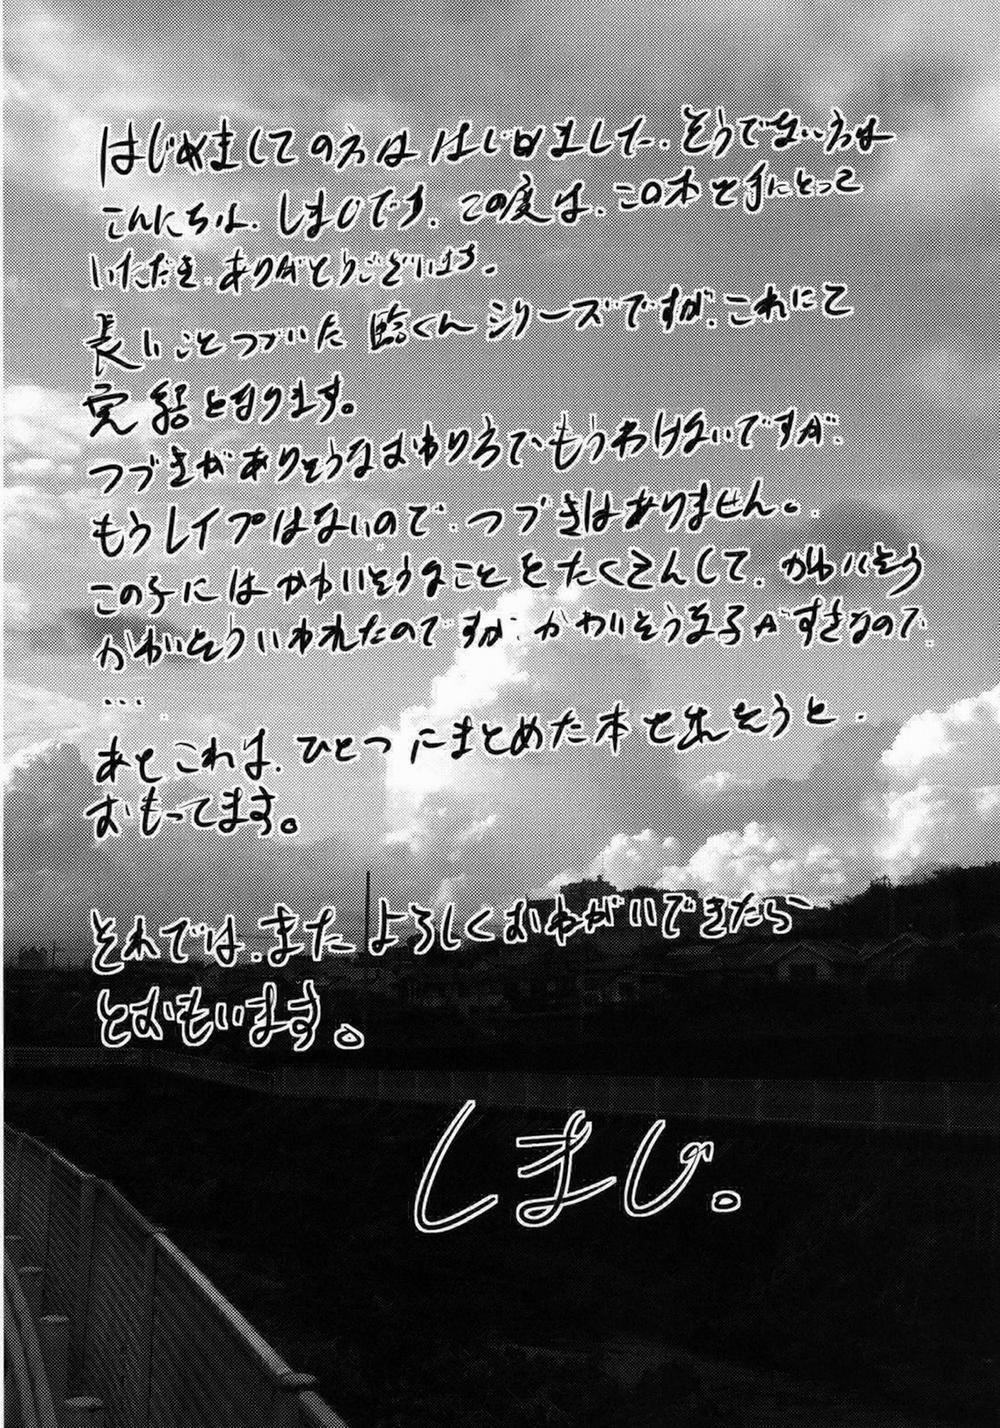 はじめましての方ははじめました、そうでない方は
こんにちは、しまじです。この度は、この本を手にとって
いただき、ありがとうございます。
長いことつづいた臨くんシリーズですが、これにて
完結となります。
つづきがありそうなおわり方でもうわけないですが、
もうレイプはないので、つづきはありません。
この子にはかわいそうなことをたくさんして、かわいそう
かわいそういわれたのですが、かわいそうな子がすきなので、
…
あとこれは、ひとつにまとめた本を出そうと、
おもってます。
それでは、またよろしくおねがいできたら
とおもいます。
しまじ。